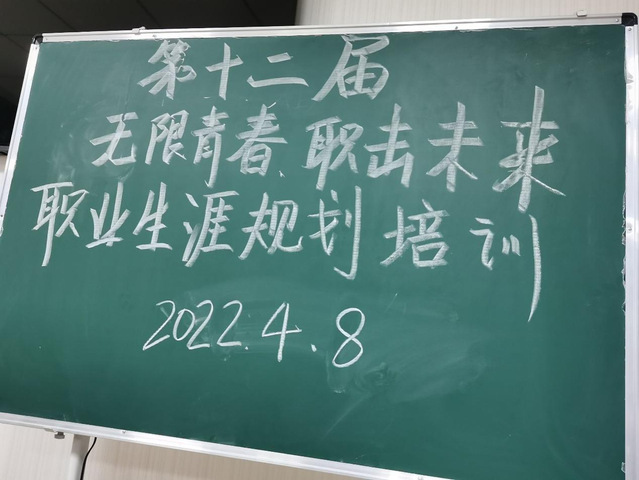 第十二届
无限青春 职击未来
职业生涯规划培训
2022.4.8